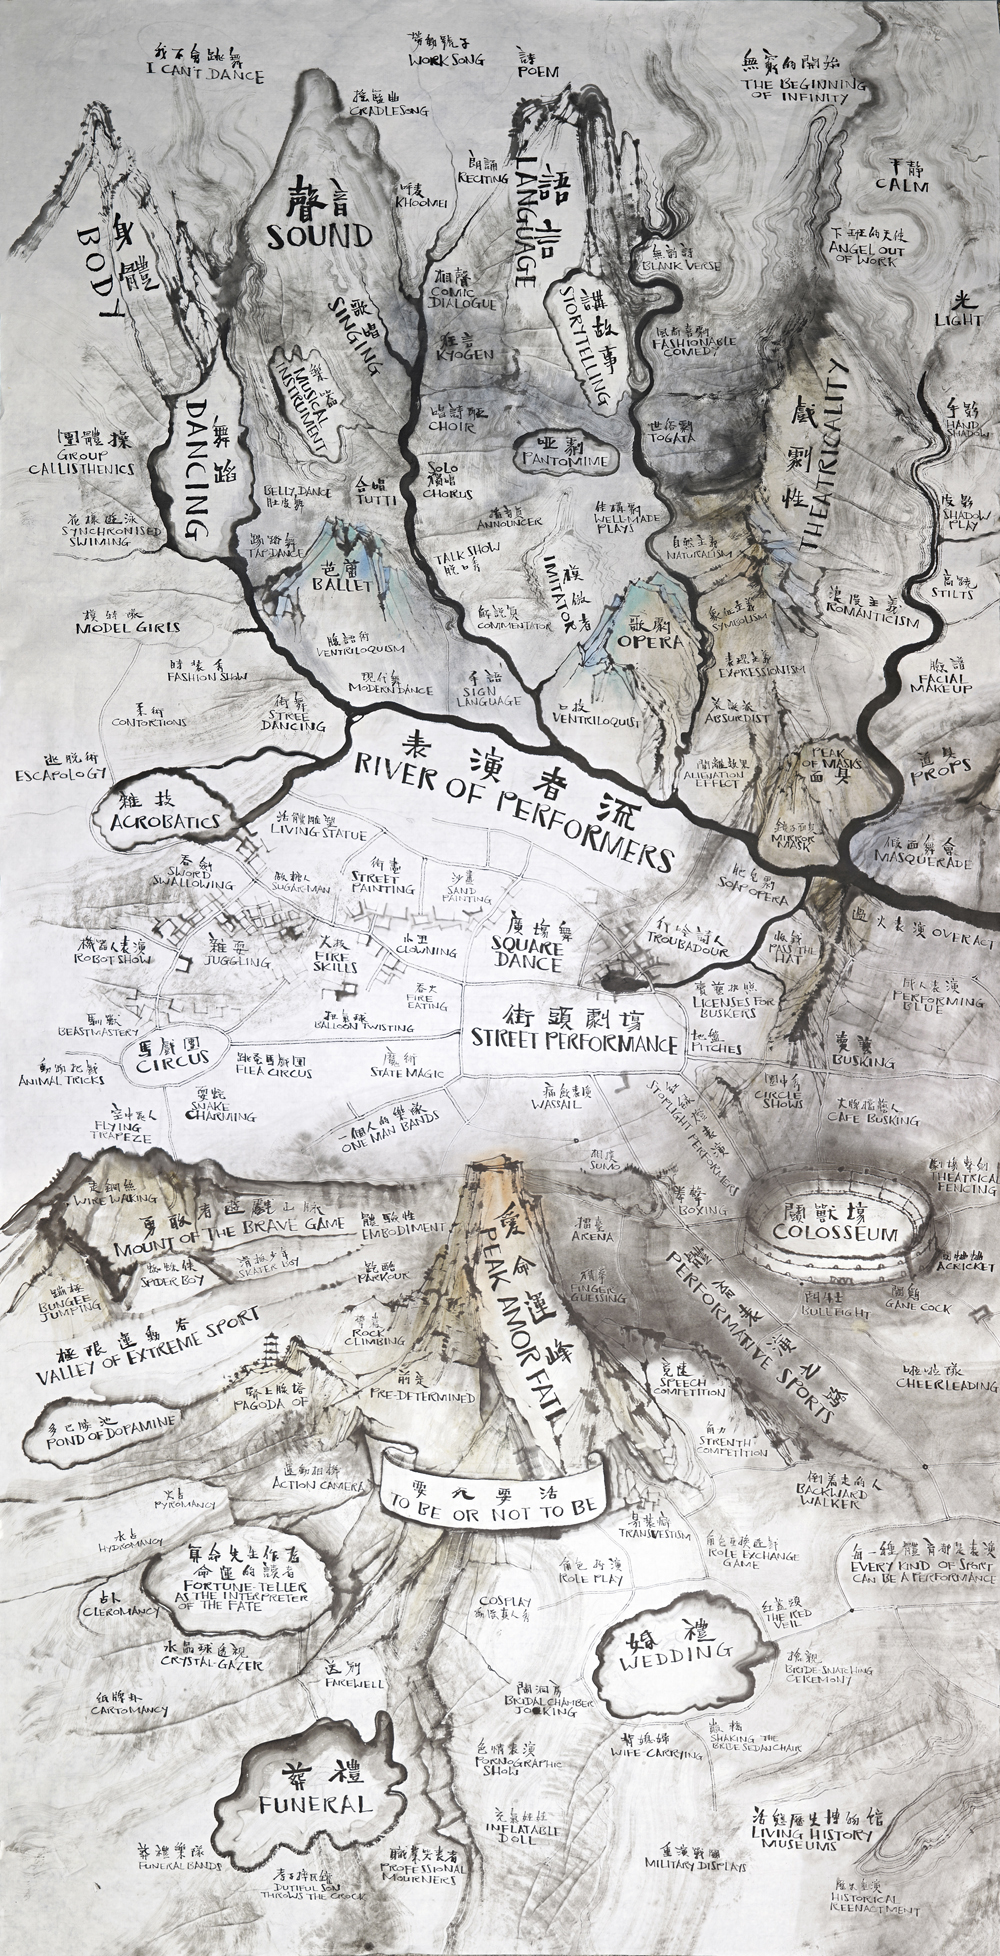 我不會跳舞
I CAN'T DANCE
勞動號子
WORK SONG
詩
POEM
無窮的開始
THE BEGINNING
OF INFINITY
搖籃曲
CRADLESONG
朗誦
RECITING
呼麦
KHOOMEI
平靜
CALM
身體
BODY
聲音
SOUND
語言
LANGUAGE
下班的天使
ANGEL OUT
OF WORK
無韵詩
BLANK VERSE
相聲
COMIC
DIALOGUE
光
LIGHT
歌唱
SINGING
講故事
STORYTELLING
狂言
KYOGEN
FASHIONABLE
COMEDY
樂器
MUSICAL
INSTRUMENT
戲劇性
THEATRICALITY
舞蹈
DANCING
唱詩班
CHOIR
世俗劇
TOGATA
手影
HAND
SHADOW
團體操
GROUP
CALLISTHENICS
啞劇
PANTOMIME
SOLO
獨唱
CHORUS
BELLY DANCE
肚皮舞
合唱
TUTTI
花樣遊泳
SYNCHRONISED
SWIMING
ANNOUNCER
佳構劇
WELL-MADE
PLAYS
皮影
SHADOW
PLAY
踢踏舞
TAP DANCE
自然主義
NATURALISM
芭蕾
BALLET
TALK SHOW
脫口秀
模倣者
IMITATOR
高蹺
STILTS
模特隊
MODEL GIRLS
解說員
COMMENTATOR
歌劇
OPERA
象征主義
SYMBOLISM
浪漫主義
ROMANTICISM
腹語術
VENTRILOQUISM
表現主義
EXPRESSIONISM
臉譜
FACIAL
MAKEUP
時裝秀
FASHION SHOW
現代舞
MODERN DANCE
手語
SIGN
LANGUAGE
柔術
CONTORTIONS
街舞
STREE
DANCING
口技
VENTRILOQUIST
荒誕派
ABSURDIST
逃脫術
ESCAPOLOGY
表演者流
RIVER OF PERFORMERS
間離效果
ALIENATION
EFFECT
PEAK
OF MASKS
面具
道具
PROPS
雜技
ACROBATICS
活體雕塑
LIVING STATUE
MIRROR
MASK
假面舞會
MASQUERADE
吞劍
SWORD
SWALLOWING
SUGAR-MAN
街畫
STREET
PAINTING
沙畫
SAND
PAINTING
肥皂劇
SOAP OPERA
機器人表演
ROBOT SHOW
雜耍
JUGGLING
火技
FIRE
SKILLS
小丑
CLOWNING
廣場舞
SQUARE
DANCE
行吟詩人
TROUBADOUR
PASS THE
HAT
過火表演 OVERACT
吞火
FIRE
EATING
賣藝執照
LICENSES FOR
BUSKERS
PERFORMING
BLUE
馴獸
BEASTMASTERY
BALLOON TWISTING
街頭劇場
STREET PERFORMANCE
地盤
PITCHES
賣藝
BUSKING
馬戲團
CIRCUS
動物把戲
ANIMAL TRICKS
跳蚤馬戲團
FLEA CIRCUS
魔術
STATE MAGIC
WASSAIL
CIRCLE
SHOWS
CAFE BUSKING
空中飛人
FLYING
TRAPEZE
耍蛇
SNAKE
CHARMING
一個人的樂隊
ONE MAN BANDS
SPOTLIGHT PERFORMERS
相撲
SUMO
THEATRICAL
FENCING
走鋼絲
WIRE WALKING
勇敢者遊戲山脈
MOUNT OF THE BRAVE GAME
體驗性
EMBODIMENT
拳擊
BOXING
鬭獸場
COLOSSEUM
擂臺
ARENA
蜘蛛俠
SPIDER BOY
滑板少年
SKATER BOY
跑酷
PARKOUR
愛命運峰
PEAK AMOR FATI
猜拳
FINGER
GUESSING
鬭蛐蛐
A CRICKET
蹦極
BUNGEE
JUMPING
鬭牛
BULLFIGHT
鬭雞
GAME COCK
PERFORMATIVE SPORTS
極限運動谷
VALLEY OF EXTREME SPORT
攀岩
ROCK
CLIMBING
PAGODA OF
前定
PRE-DETERMINED
SPEECH
COMPETITION
啦啦隊
CHEERLEADING
多巴胺池
POND OF DOPAMINE
角力
STRENTH
COMPETITION
運動相機
ACTION CAMERA
要死要活
TO BE OR NOT TO BE
倒着走的人
BACKWARD
WALKER
火占
PYROMANCY
易裝癖
TRANSVESTISM
水占
HYDROMANCY
算命先生作者
命運的讀者
FORTUNE-TELLER
AS THE INTERPRETER
OF THE FATE
角色扮演
ROLE PLAY
角色互換遊戲
ROLE EXCHANGE
GAME
每一種體育都是表演
EVERY KIND OF SPORT
CAN BE A PERFORMANCE
占卜
CLEROMANCY
COSPLAY
紅蓋頭
THE RED
VEIL
婚禮
WEDDING
水晶球透視
CRYSTAL-GAZER
送別
FAREWELL
搶親
BRIDE-SNATCHING
CEREMONY
紙牌卦
CARTOMANCY
鬧洞房
BRIDAL CHAMBER
JOKING
背媳婦
WIFE-CARRYING
顛轎
SHAKING THE
BRIDE SEDAN CHAIR
色情表演
PORNOGRAPHIC
SHOW
葬禮
FUNERAL
充氣娃娃
INFLATABLE
DOLL
活態歷史博物館
LIVING HISTORY
MUSEUMS
葬禮樂隊
FUNERAL BANDS
孝子摔瓦罐
DUTIFUL SON
THROWS THE CROCK
職業哭喪者
PROFESSIONAL
MOURNERS
MILITARY DISPLAYS
歷史重演
HISTORICAL
REENACTMENT